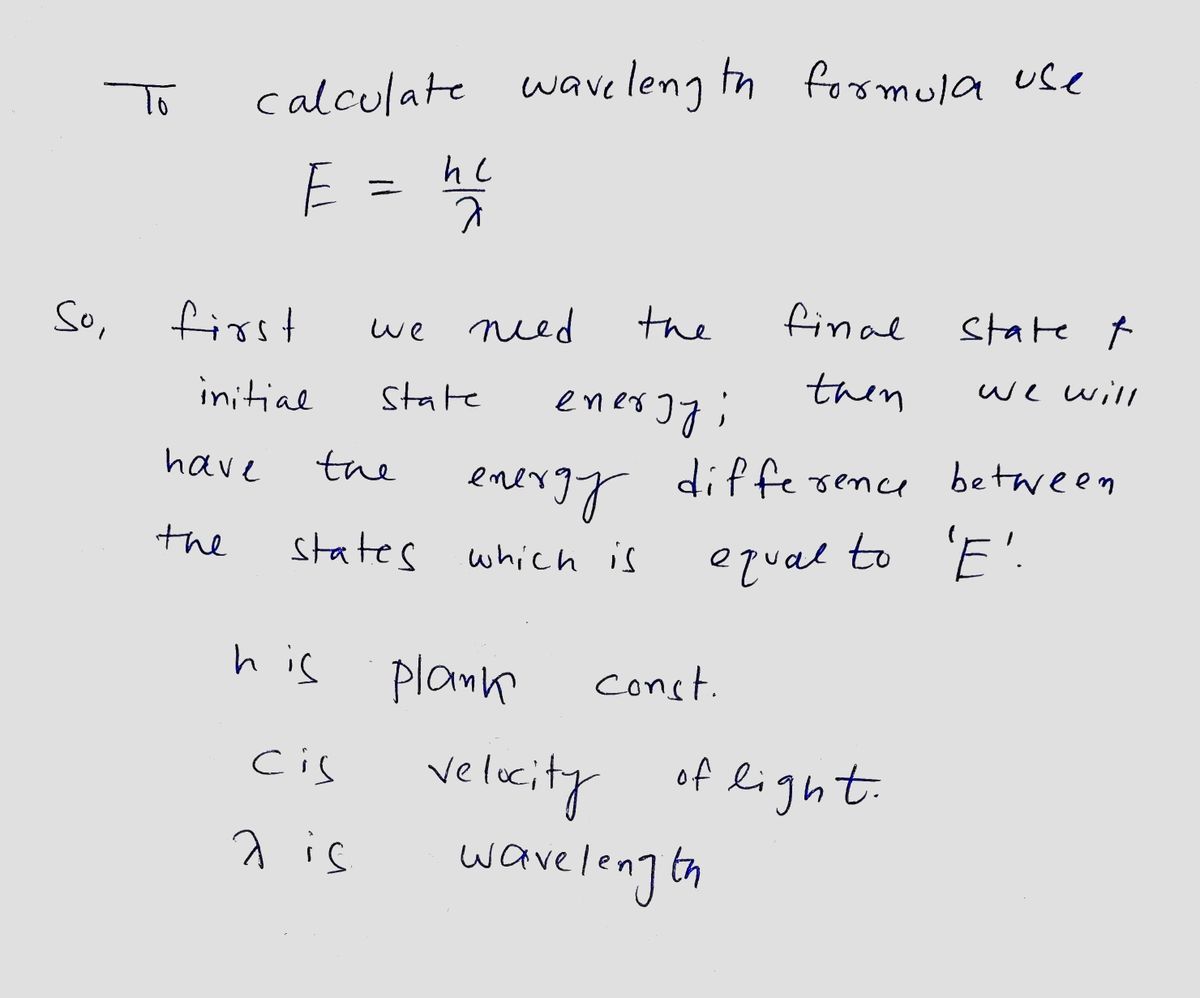 To calculate wavelength formula use
E = hc/λ
So, first we need the final state &
initial state energy; then we will
have the energy difference between
the states which is equal to 'E'.
h is plank const.
c is velocity of light.
λ is wavelength